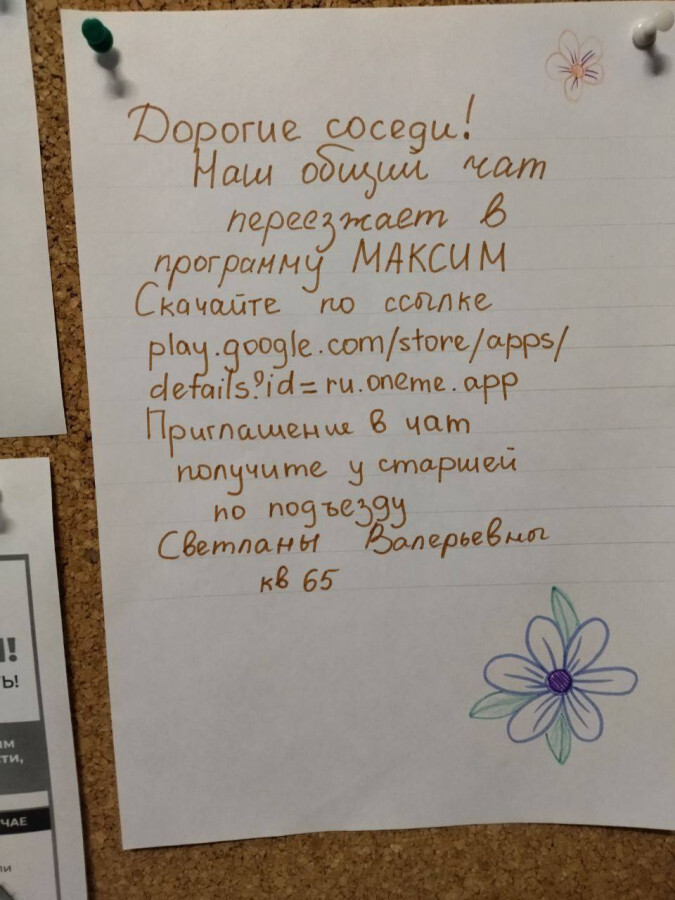 Дорогие соседи!
Наш общий чат
переезжает в
программу МАКСИМ
Скачайте по ссылке
play.google.com/store/apps/
details?id=ru.oneme.app
Приглашение в чат
получите у старшей
по подъезду
Светланы Валерьевны
кв 65